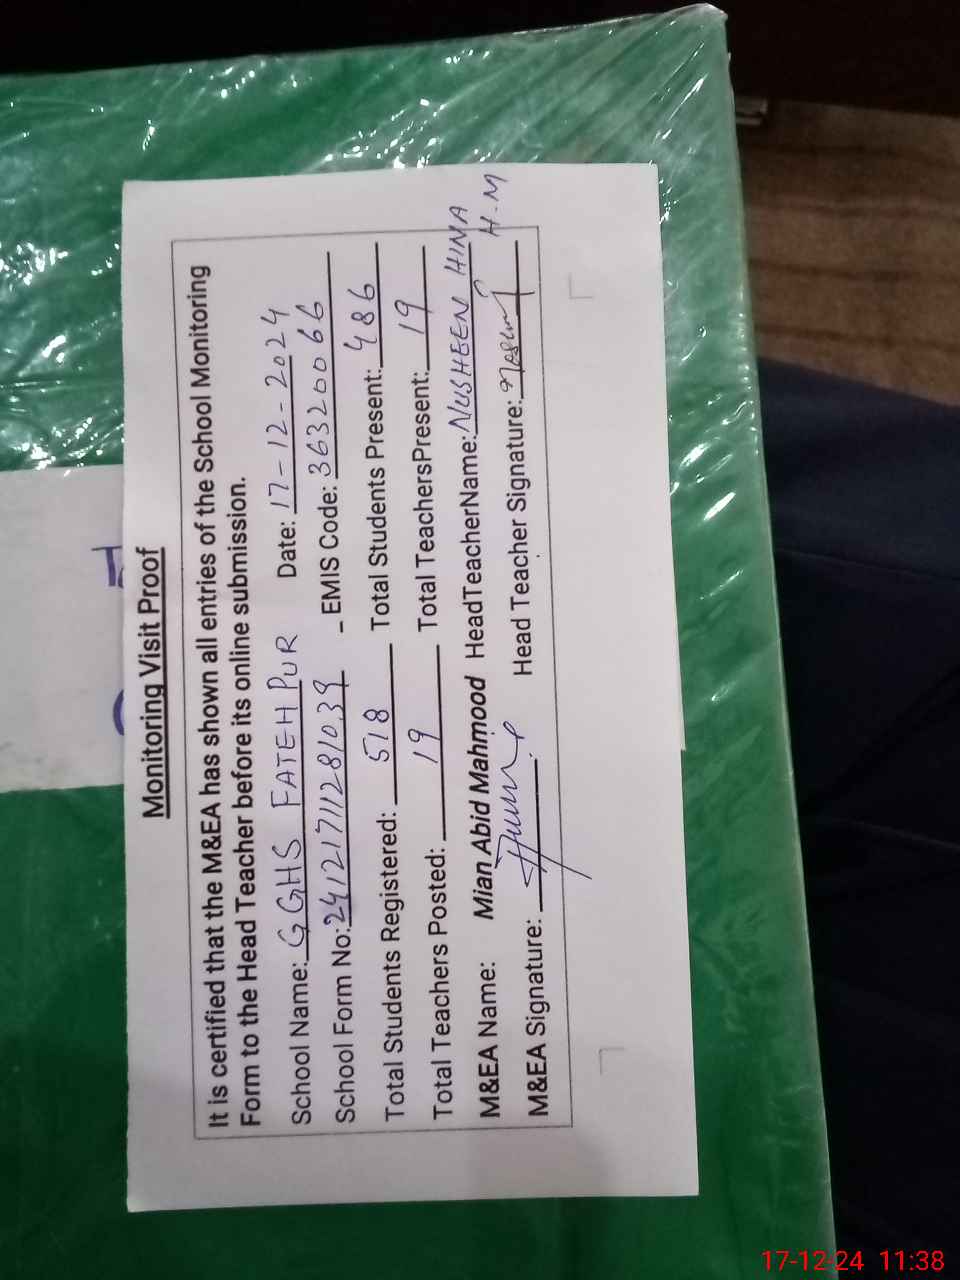 Monitoring Visit Proof
It is certified that the M&EA has shown all entries of the School Monitoring
Form to the Head Teacher before its online submission.
School Name: GGHS FATEH PUR Date: 17-12-2024
School Form No: 24121711281039 EMIS Code: 36320066
Total Students Registered: 518 Total Students Present: 486
Total Teachers Posted: 19 Total TeachersPresent: 19
M&EA Name: Mian Abid Mahmood HeadTeacherName: NUSHEEN HINA
M&EA Signature: Head Teacher Signature: H.M
17-12-24 11:38